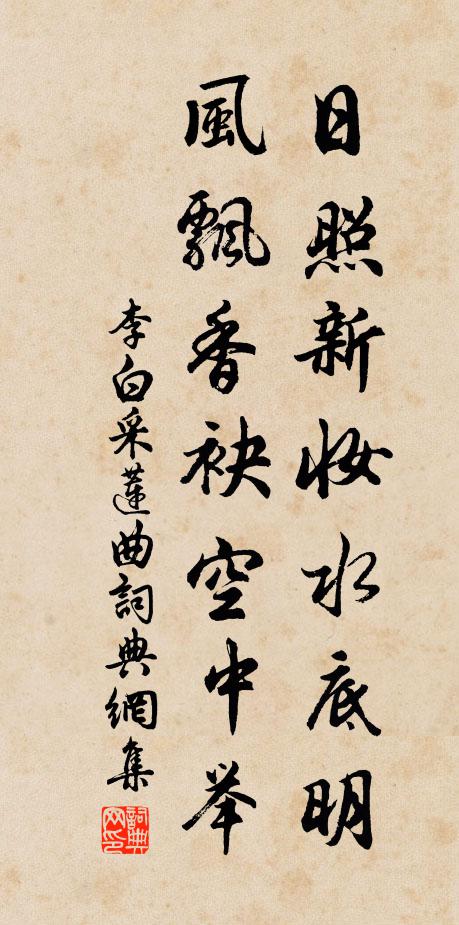 日照新妆水底明
風飄香袂空中举
李白采蓮曲詞典網集
詞典网印